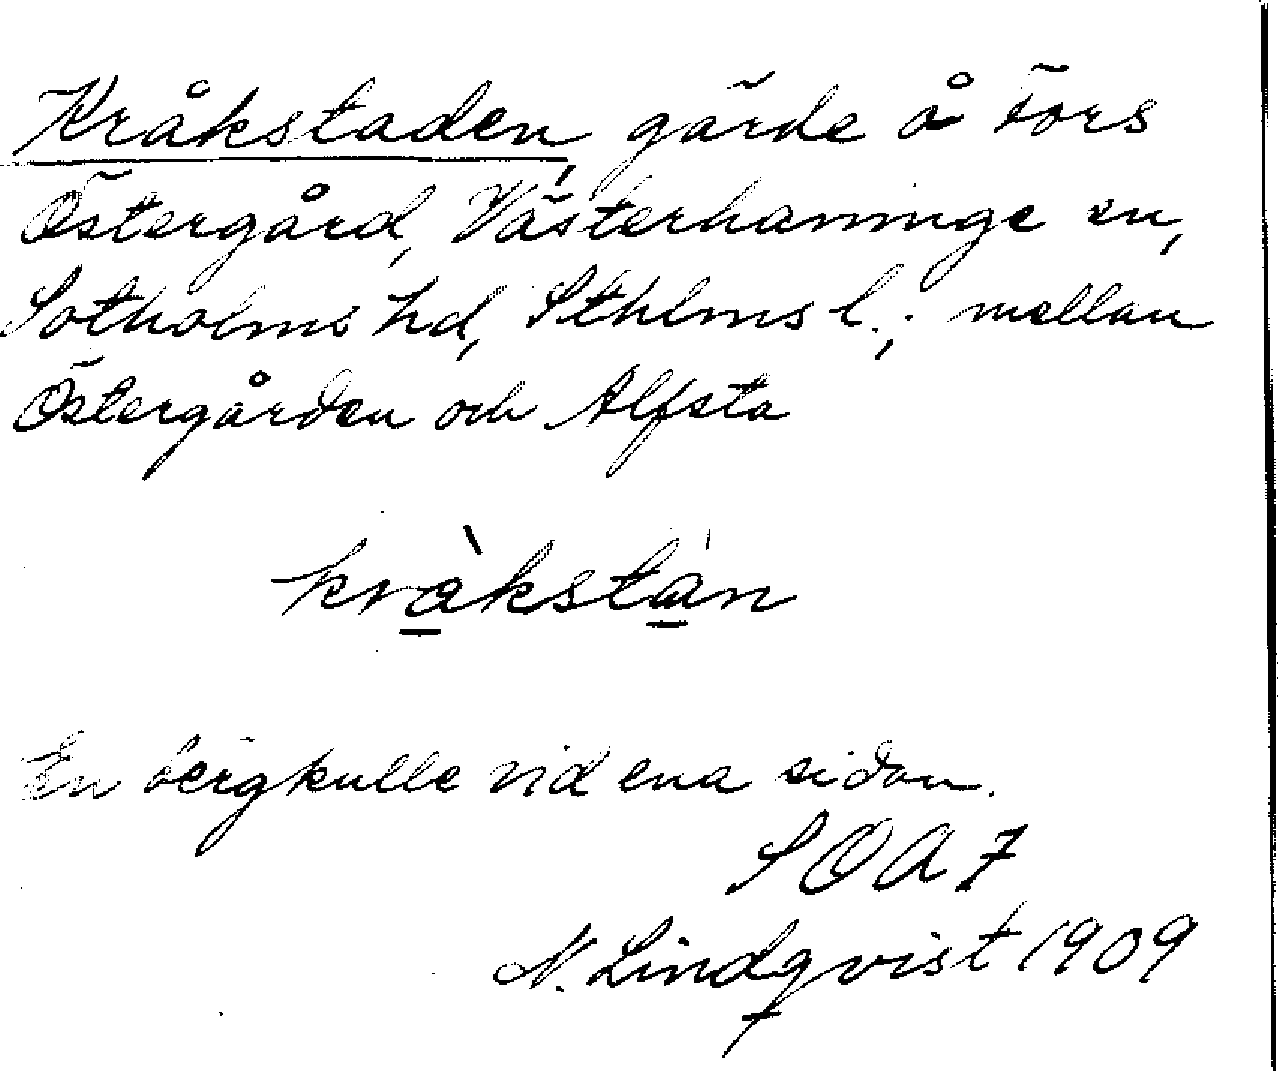 Kråkstaden, gärde å Tors
Östergård, Västerhaninge sn,
Sotholms hd, Sthlms l.; mellan
Östergården och Alfsta
kràkstàn
En bergkulle vid ena sidan.
SOA 7
N. Lindqvist 1909